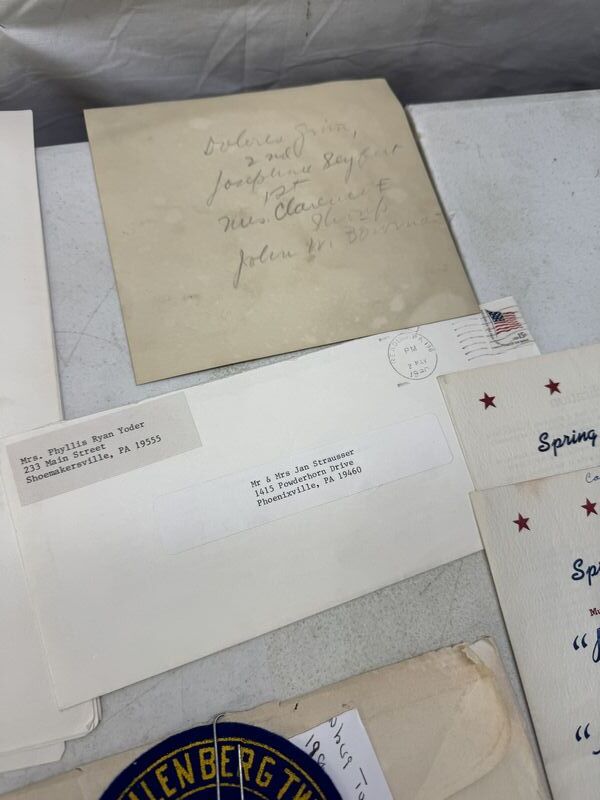 Dolores
2nd
Josephine Seyfert
1st
Mrs. Clarence E
John W. Bowman
PM
Mrs. Phyllis Ryan Yoder
233 Main Street
Shoemakersville, PA 19555
Mr & Mrs Jan Strausser
1415 Powderhorn Drive
Phoenixville, PA 19460
Spring
Co
Spr
Mu
LENBERG TW